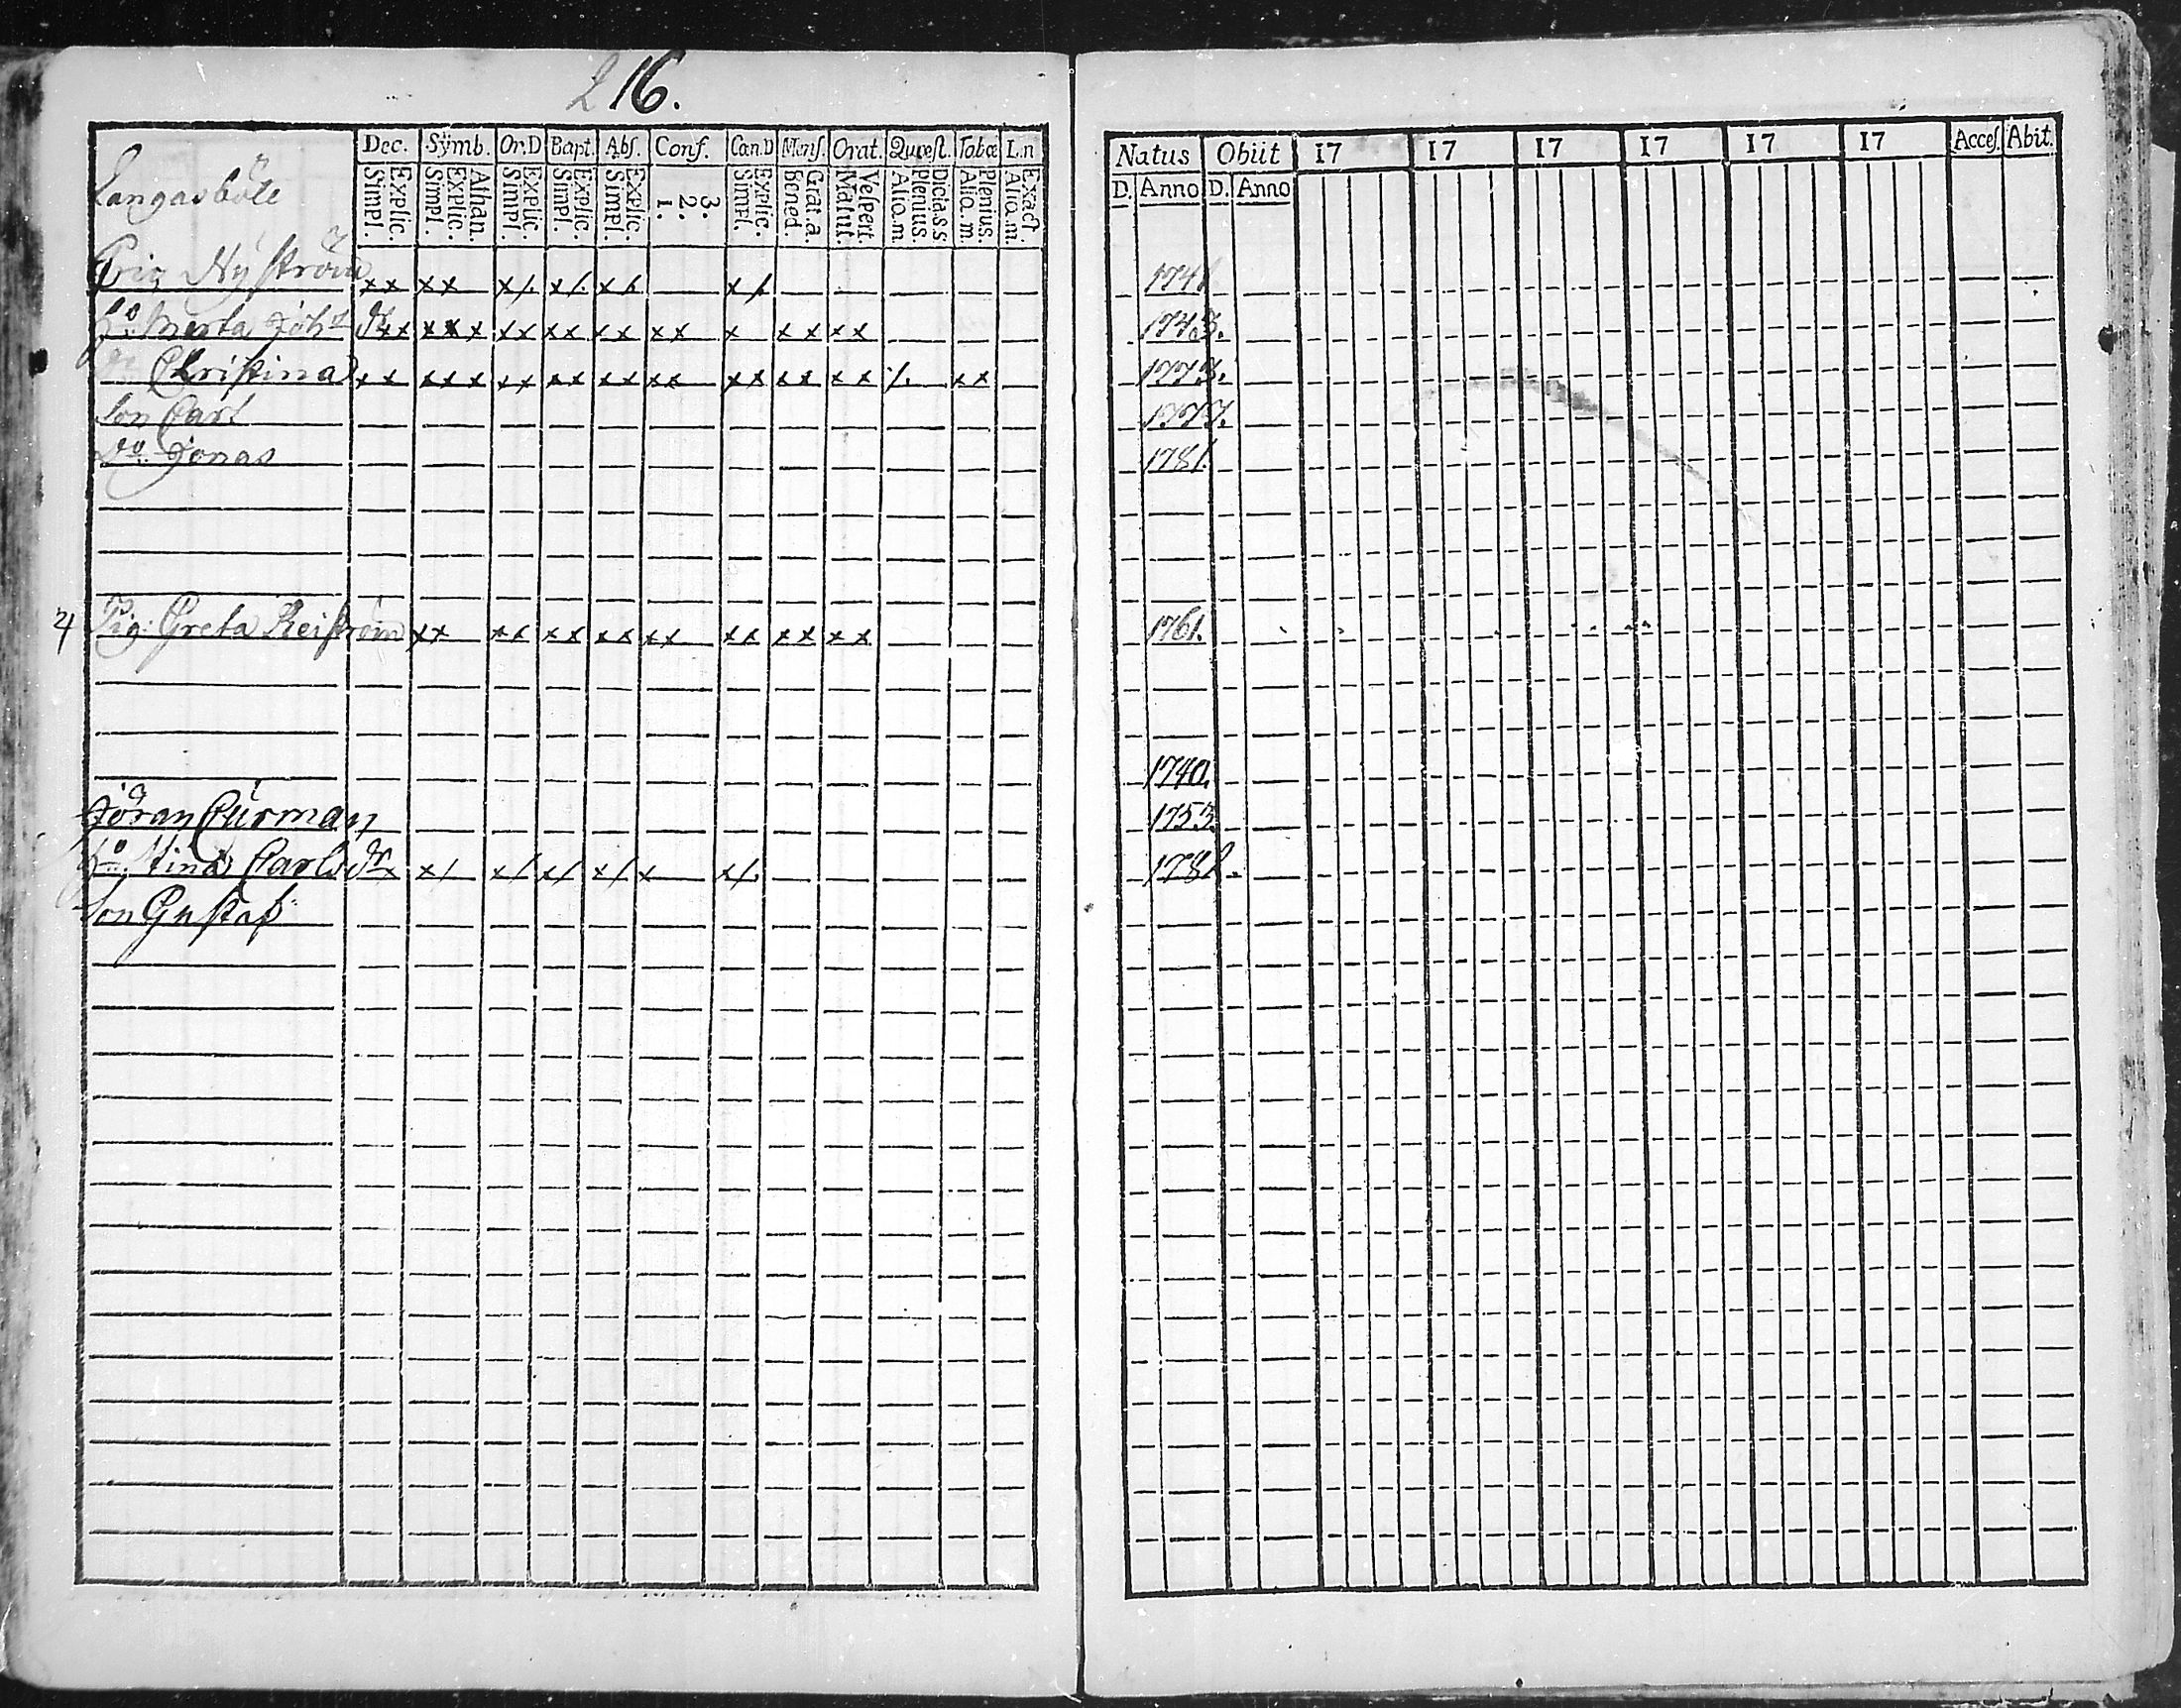 216.
Dec. Sÿmb. Or.D Bapt. Abſ. Conf. Cœn.D Menſ. Orat. Quæſt. Tabæ L.n
Simpl. Explic. Simpl. Explic. Athan. Simpl. Explic. Simpl. Explic. Simpl. Explic. 1. 2. 3. Simpl. Explic. Boned. Grat.a. Matut. Veſpert. Alio.m. Plenius. Dicta s.s. Alio.m. Plenius. Alio.m. Exact.
Natus Obiit 17 17 17 17 17 17 Acceſ. Abit.
D. Anno D. Anno
Langarböle
Eric Nÿström xx xx x/. x/. xx x/. 1741
Ho. Marta Joh dr xx xxx xx xx xx xx x xx xx 1743.
Christina xx xxx xx xx xx xx xx xx xx /. xx 1773.
Son Carl 1777.
Do. Jonas 1781.
4 Pig: Greta Reiström xx xx xx xx xx xx xx xx 1761.
1740.
Jöran Curman 1753
Ho. Stina Carls dr x x/ x/ x/ x/ x x/. 1781.
Son Gustaf